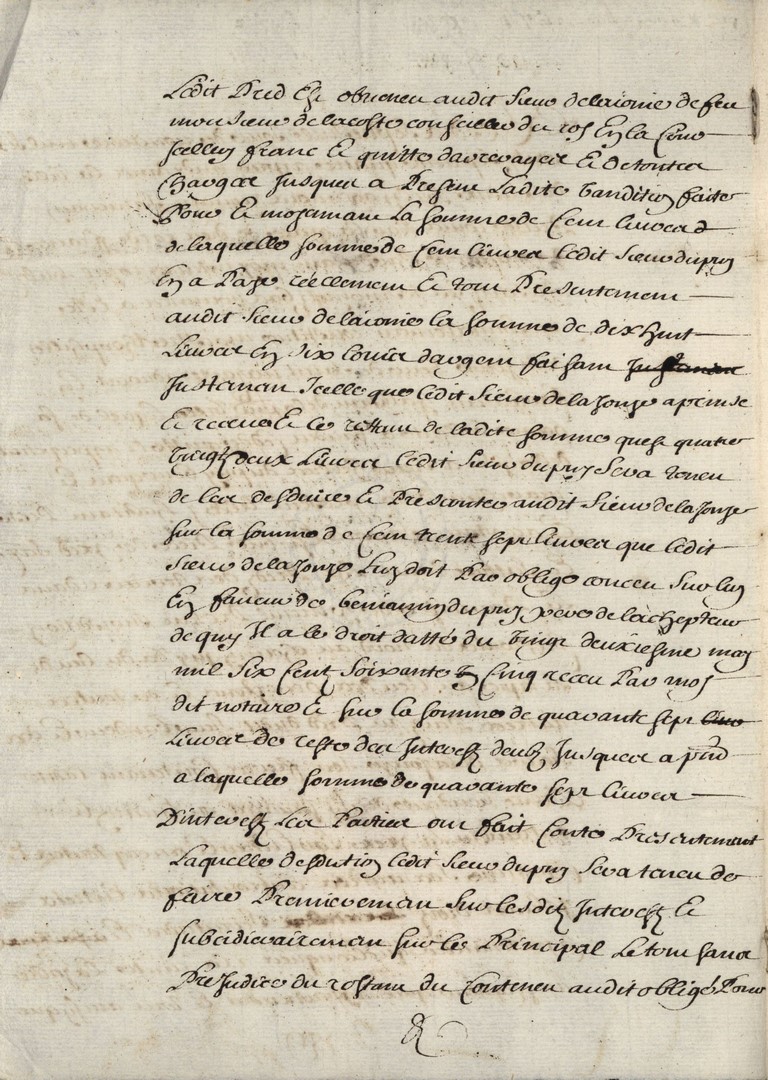 Ledit Pred Est obveneu audit sieur delaionie de feu
monsieur delacoste conseiller du roy En la Cour
seellin franc Et quitte darreyages Et de toutes
Charges Jusques a Present Ladite Vandition faite
Pour Et moyenant La somme de Cent livres
de laquelle somme de Cent livres ledit sieur dupuy
En a Paye réelement Et tout Presentement
audit sieur delaionie la somme de dix huit
Livres En six louis dargent faisant
Justemant Icelle que ledit sieur dela Jonye a prinse
Et receue Et le restant de ladite somme quest quatre
Vingtz deux Livres ledit sieur dupuy sera teneu
de les desduire Et Presanter audit sieur dela Jonye
sur la somme de Cent trente sept livres que ledit
sieur dela Jonye Luy doit Par oblige conceu sur luy
En faveur de beniamin dupuy pere de lachepteur
de quy Il a le droit datté du Vingt deuxiesme may
mil six Centz soixante Cinq receu Par moy
dit notaire Et sur la somme de quarante sept
Livres de reste des Interestz deubz Jusques a pnt
a laquelle somme de quarante sept livres
Dinterestz Les Parties ont fait Conte Presentement
Laquelle desdution ledit sieur dupuy sera teneu de
faire Premieremant sur lesditz Interestz Et
subcidierairemant sur le Principal Le tout sans
Prejudice du restant du Conteneu audit obligé Pour